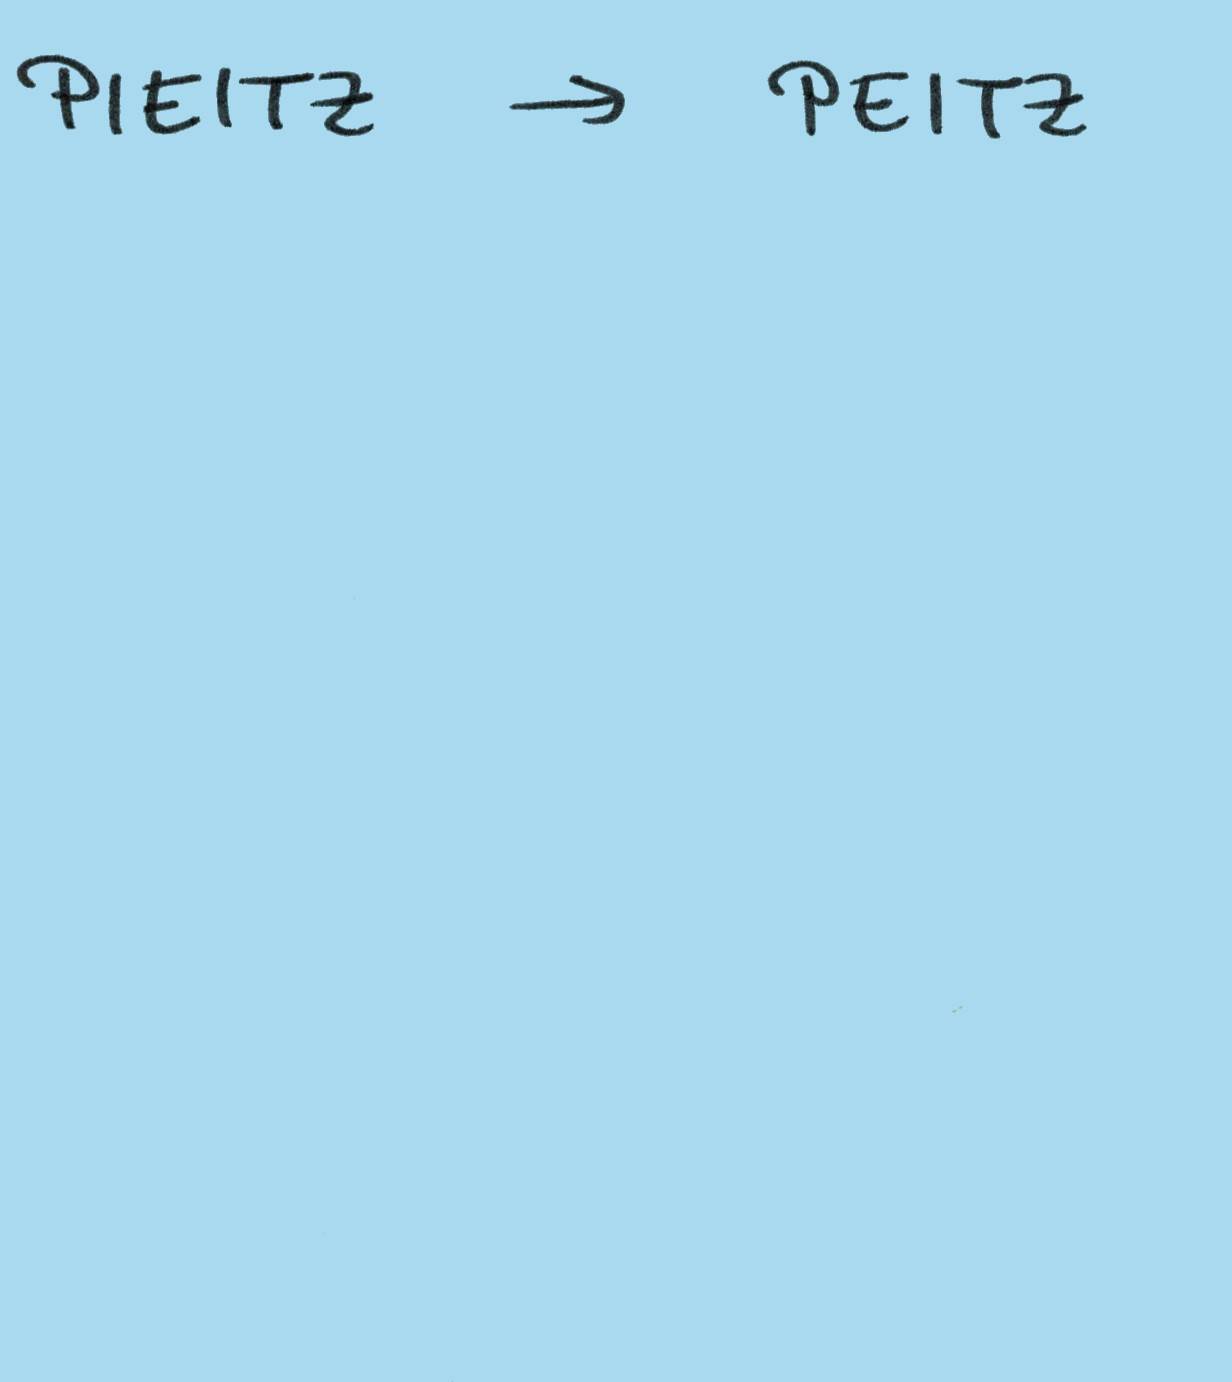 PIEITZ → PEITZ